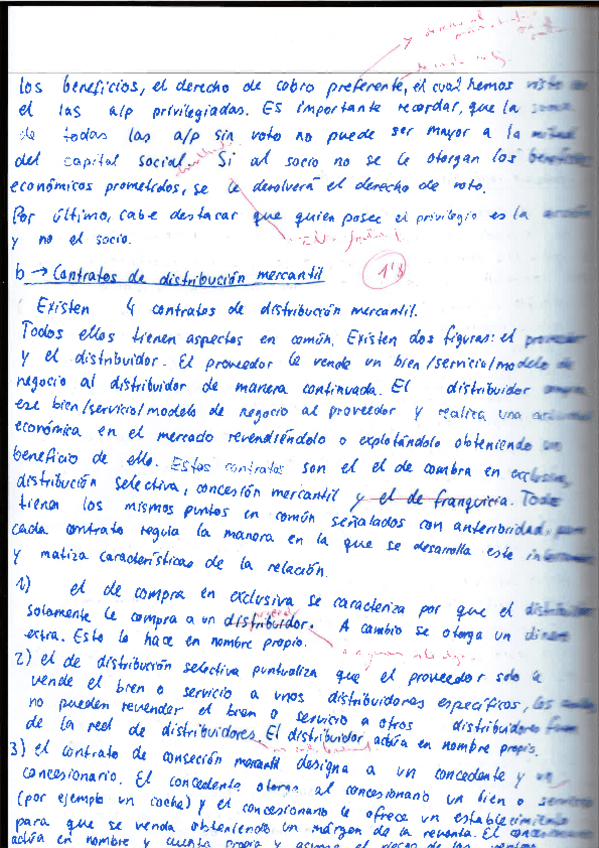 los beneficios, el derecho de cobro preferente, el cual hemos visto en
el las a/p privilegiadas. Es importante recordar, que la suma
de todas las a/p sin voto no puede ser mayor a la mitad
del capital social. Si al socio no se le otorgan los beneficios
económicos prometidos, se le devolverá el derecho de voto.
Por último, cabe destacar que quien posee el privilegio es la acción
y no el socio.
b → Contratos de distribución mercantil
Existen 4 contratos de distribución mercantil.
Todos ellos tienen aspectos en común. Existen dos figuras: el proveedor
y el distribuidor. El proveedor le vende un bien/servicio/modelo de
negocio al distribuidor de manera continuada. El distribuidor compra
ese bien/servicio/modelo de negocio al proveedor y realiza una actividad
económica en el mercado revendiéndolo o explotándolo obteniendo un
beneficio de ello. Estos contratos son el el de compra en exclusiva,
distribución selectiva, concesión mercantil y el de franquicia. Todos
tienen los mismos puntos en común señalados con anterioridad, pero
cada contrato regula la manera en la que se desarrolla este
y matiza características de la relación.
1) el de compra en exclusiva se caracteriza por que el distribuidor
solamente le compra a un distribuidor. A cambio se otorga un dinero
extra. Esto lo hace en nombre propio.
2) el de distribución selectiva puntualiza que el proveedor solo le
vende el bien o servicio a unos distribuidores específicos, los cuales
no pueden revender el bien o servicio a otros distribuidores fuera
de la red de distribuidores. El distribuidor actúa en nombre propio.
3) el contrato de conseción mercantil designa a un concedente y un
concesionario. El concedente otorga al concesionario un bien o servicio
(por ejemplo un coche) y el concesionario le ofrece un establecimiento
para que se venda obteniendo un márgen de la reventa. El concesionario
actúa en nombre y cuenta propia y asume el riesgo de las ventas